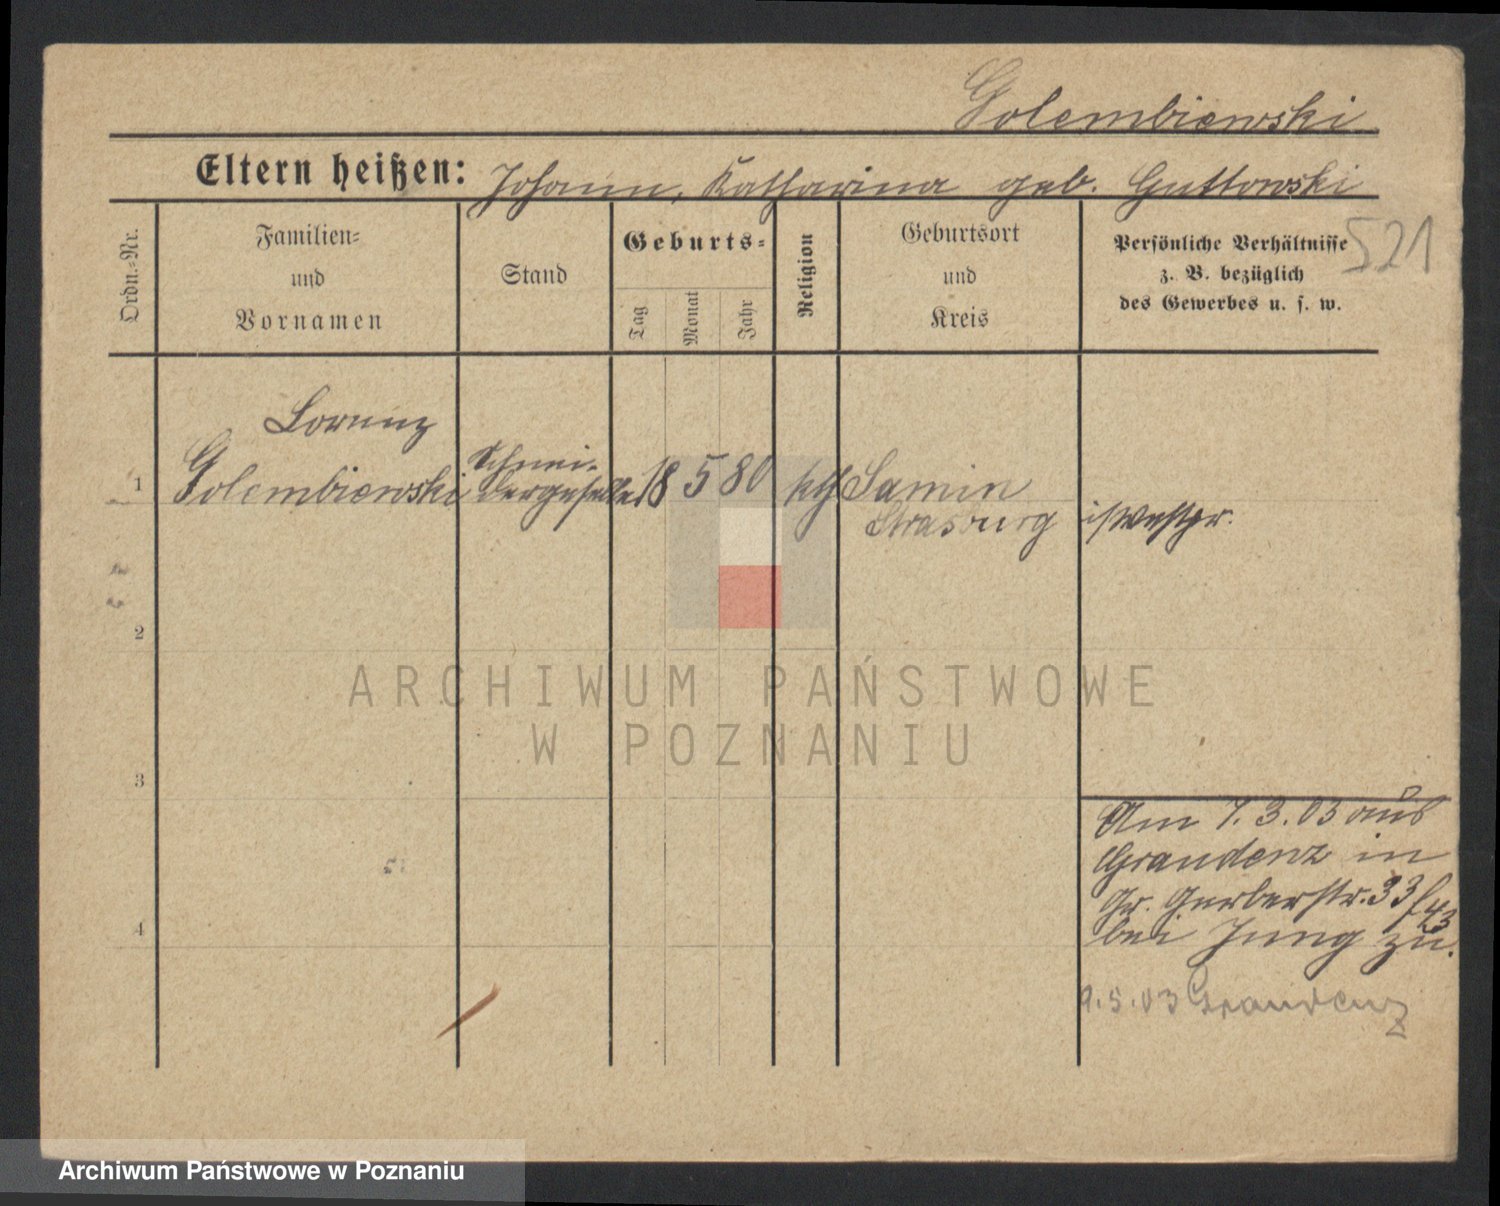 Golembiewski
Eltern heißen: Johann, Katharina geb. Guttowski
521
Ordn.-Nr.
Familien-
und
Vornamen
Stand
Geburts-
Tag
Monat
Jahr
Religion
Geburtsort
und
Kreis
Persönliche Verhältnisse
z. B. bezüglich
des Gewerbes u. s. w.
Lorenz
1 Golembiewski Schnei-
dergeselle 18 5 80 kth Samin
Strasburg i/Westpr.
2
3
4
Am 7.3.03 aus
Graudenz in
Gr. Gerberstr. 33/43
bei Jung zu.
9.5.03 Graudenz
ARCHIWUM PAŃSTWOWE
W POZNANIU
Archiwum Państwowe w Poznaniu